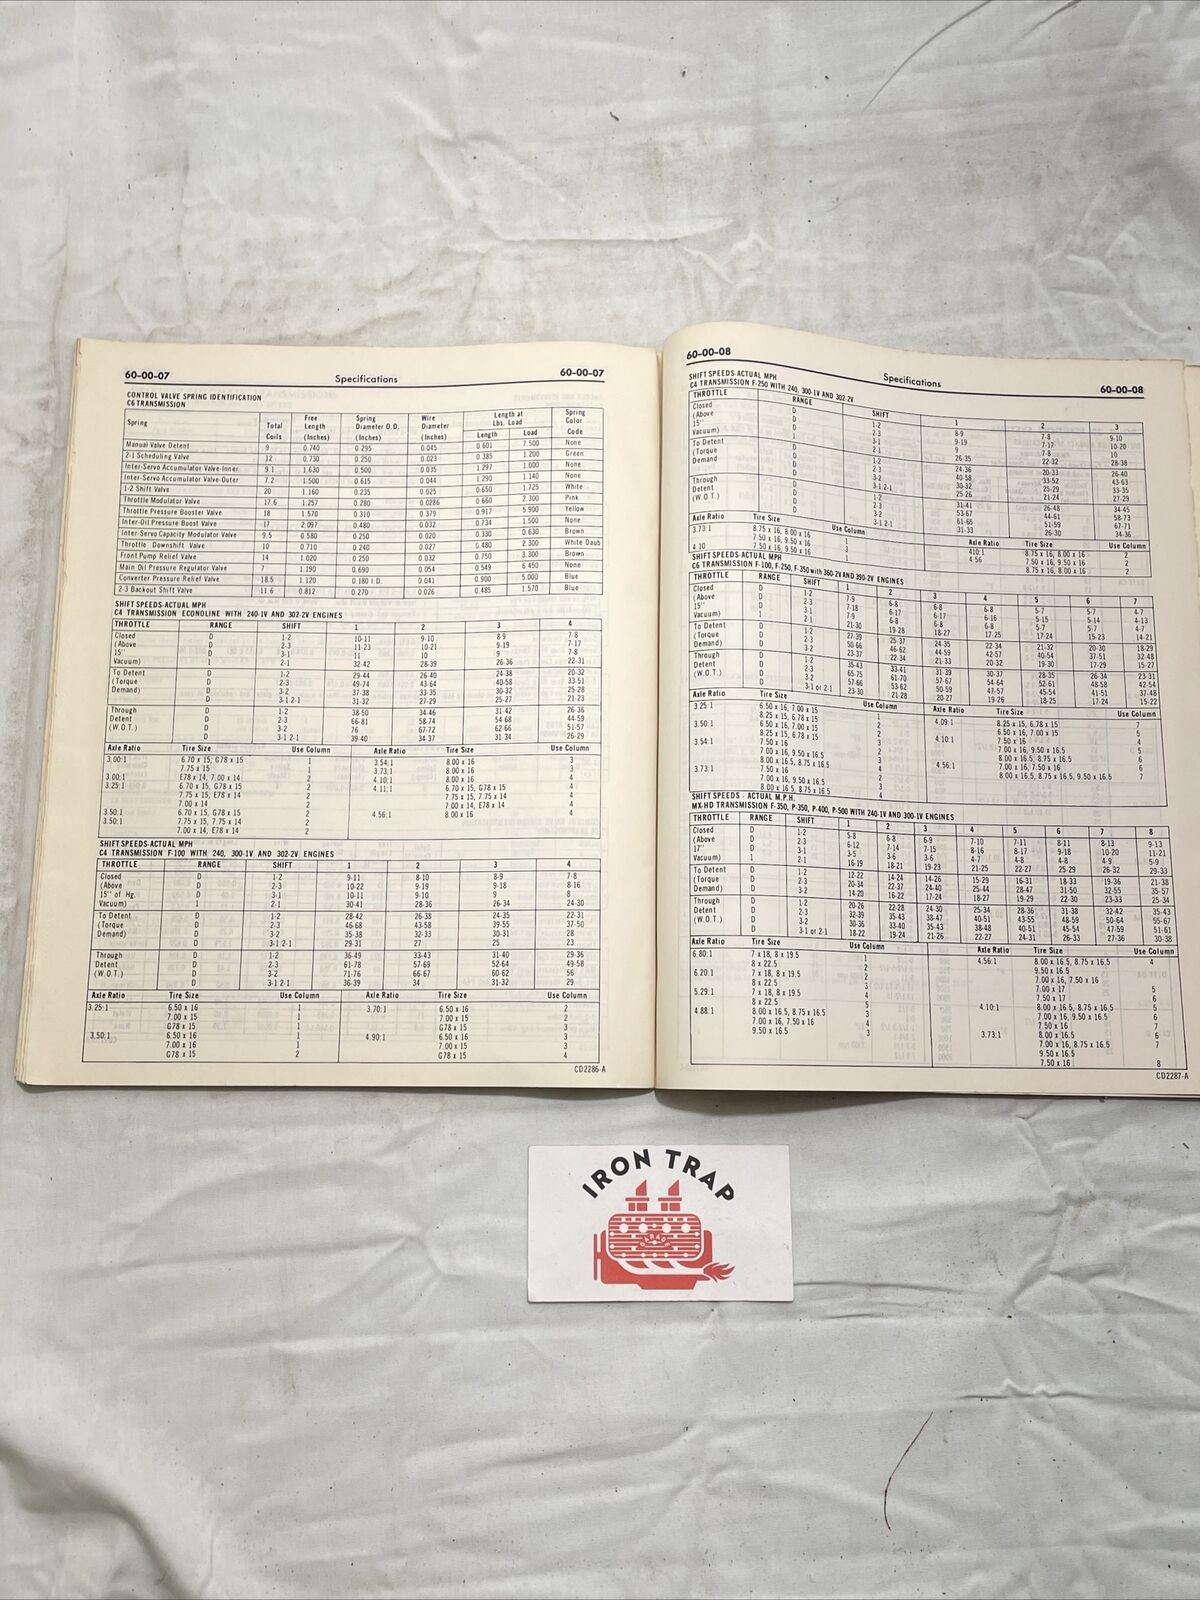 60-00-07 Specifications 60-00-07
CONTROL VALVE SPRING IDENTIFICATION
C6 TRANSMISSION
Spring Total Coils Free Length (Inches) Spring Diameter O.D. (Inches) Wire Diameter (Inches) Length at Lbs. Load Length Load Spring Color Code
Manual Valve Detent 9 0.740 0.295 0.045 0.601 7.500 None
2-1 Scheduling Valve 12 0.730 0.250 0.023 0.385 1.200 Green
Inter-Servo Accumulator Valve-Inner 9.1 1.630 0.500 0.035 1.297 1.000 None
Inter-Servo Accumulator Valve-Outer 7.2 1.500 0.615 0.044 1.290 1.140 None
1-2 Shift Valve 20 1.160 0.235 0.025 0.650 1.725 White
Throttle Modulator Valve 17.6 1.257 0.280 0.0286 0.660 2.300 Pink
Throttle Pressure Booster Valve 18 1.570 0.310 0.379 0.917 5.900 Yellow
Inter-Oil Pressure Boost Valve 17 2.097 0.480 0.032 0.734 1.500 None
Inter-Servo Capacity Modulator Valve 9.5 0.580 0.250 0.020 0.330 0.630 Brown
Throttle Downshift Valve 10 0.710 0.240 0.027 0.480 2.300 White Daub
Front Pump Relief Valve 14 1.020 0.250 0.032 0.750 3.300 Brown
Main Oil Pressure Regulator Valve 7 1.190 0.690 0.054 0.549 6.450 None
Converter Pressure Relief Valve 18.5 1.120 0.180 I.D. 0.041 0.900 5.000 Blue
2-3 Backout Shift Valve 11.6 0.812 0.270 0.026 0.485 1.570 Blue
SHIFT SPEEDS-ACTUAL MPH
C4 TRANSMISSION ECONOLINE WITH 240-1V AND 302-2V ENGINES
THROTTLE RANGE SHIFT 1 2 3 4
Closed D 1-2 10-11 9-10 8-9 7-8
(Above D 2-3 11-23 10-21 9-19 7-17
15" D 3-1 11 10 9 7-8
Vacuum) 1 2-1 32-42 28-39 26-36 22-31
To Detent D 1-2 29-44 26-40 24-38 20-32
(Torque D 2-3 49-74 43-64 40-58 33-51
Demand) D 3-2 37-38 33-35 30-32 25-28
D 3-1 2-1 31-32 27-29 25-27 21-23
Through D 1-2 38-50 34-46 31-42 26-36
Detent D 2-3 66-81 58-74 54-68 44-59
(W.O.T.) D 3-2 76 67-72 62-66 51-57
D 3-1 2-1 39-40 34-37 31-34 26-29
Axle Ratio Tire Size Use Column Axle Ratio Tire Size Use Column
3.00:1 6.70 x 15, G78 x 15 1 3.54:1 8.00 x 16 3
7.75 x 15 1 3.73:1 8.00 x 16 3
3.00:1 E78 x 14, 7.00 x 14 2 4.10:1 8.00 x 16 4
3.25:1 6.70 x 15, G78 x 15 2 4.11:1 6.70 x 15, G78 x 15 4
7.75 x 15, E78 x 14 2 7.75 x 15, 7.75 x 14 4
7.00 x 14 2 7.00 x 14, E78 x 14 4
3.50:1 6.70 x 15, G78 x 15 2 4.56:1 8.00 x 16 4
3.50:1 7.75 x 15, 7.75 x 14 2
7.00 x 14, E78 x 14 2
SHIFT SPEEDS-ACTUAL MPH
C4 TRANSMISSION F-100 WITH 240, 300-1V AND 302-2V ENGINES
THROTTLE RANGE SHIFT 1 2 3 4
Closed D 1-2 9-11 8-10 8-9 7-8
(Above D 2-3 10-22 9-19 9-18 8-16
15" of Hg. D 3-1 10-11 9-10 9 8
Vacuum) 1 2-1 30-41 28-36 26-34 24-30
To Detent D 1-2 28-42 26-38 24-35 22-31
(Torque D 2-3 46-68 43-58 39-55 37-50
Demand) D 3-2 35-38 32-33 30-31 28
D 3-1 2-1 29-31 27 25 23
Through D 1-2 36-49 33-43 31-40 29-36
Detent D 2-3 61-78 57-69 52-64 49-58
(W.O.T.) D 3-2 71-76 66-67 60-62 56
D 3-1 2-1 36-39 34 31-32 29
Axle Ratio Tire Size Use Column Axle Ratio Tire Size Use Column
3.25:1 6.50 x 16 1 3.70:1 6.50 x 16 2
7.00 x 15 1 7.00 x 15 2
G78 x 15 1 G78 x 15 3
3.50:1 6.50 x 16 1 4.90:1 6.50 x 16 3
7.00 x 16 1 7.00 x 15 3
G78 x 15 2 G78 x 15 4
CD2286-A
60-00-08 Specifications 60-00-08
SHIFT SPEEDS-ACTUAL MPH
C4 TRANSMISSION F-250 WITH 240, 300-1V AND 302-2V
THROTTLE RANGE SHIFT 1 2 3
Closed D 1-2 8-9 7-8 9-10
(Above D 2-3 9-19 7-17 10-20
15" D 3-1 9 7-8 10
Vacuum) 1 2-1 26-35 22-32 28-38
To Detent D 1-2 24-36 20-33 26-40
(Torque D 2-3 40-58 33-52 43-63
Demand D 3-2 30-32 25-29 33-35
D 3-1 2-1 25-26 21-24 27-29
Through D 1-2 31-41 26-48 34-45
Detent D 2-3 53-67 44-61 58-73
(W.O.T.) D 3-2 61-65 51-59 67-71
D 3-1 2-1 31-33 26-30 34-36
Axle Ratio Tire Size Use Column Axle Ratio Tire Size Use Column
3.73:1 8.75 x 16, 8.00 x 16 1 410:1 8.75 x 16, 8.00 x 16 2
7.50 x 16, 9.50 x 16 3 4.56 7.50 x 16, 9.50 x 16 2
4.10 7.50 x 16, 9.50 x 16 1 8.75 x 16, 8.00 x 16 2
SHIFT SPEEDS-ACTUAL MPH
C6 TRANSMISSION F-100, F-250, F-350 with 360-2V AND 390-2V ENGINES
THROTTLE RANGE SHIFT 1 2 3 4 5 6 7
Closed D 1-2 7-9 6-8 6-8 6-8 5-7 5-7 4-7
(Above D 2-3 7-18 6-17 6-17 6-16 5-15 5-14 4-13
15" D 3-1 7-9 6-8 6-8 6-8 5-7 5-7 4-7
Vacuum) 1 2-1 21-30 19-28 18-27 17-25 17-24 15-23 14-21
To Detent D 1-2 27-39 25-37 24-35 22-34 21-32 20-30 18-29
(Torque D 2-3 50-66 46-62 44-59 42-57 40-54 37-51 32-48
Demand) D 3-2 23-37 22-34 21-33 20-32 19-30 17-29 15-27
Through D 1-2 35-43 33-41 31-39 30-37 28-35 26-34 23-31
Detent D 2-3 65-75 61-70 57-67 54-64 52-61 48-58 42-54
(W.O.T.) D 3-2 57-66 53-62 50-59 47-57 45-54 41-51 37-48
D 3-1 or 2-1 23-30 21-28 20-27 19-26 18-25 17-24 15-22
Axle Ratio Tire Size Use Column Axle Ratio Tire Size Use Column
3.25:1 6.50 x 16, 7.00 x 15 1 4.09:1 8.25 x 15, 6.78 x 15 5
8.25 x 15, 6.78 x 15 2 6.50 x 16, 7.00 x 15 5
3.50:1 6.50 x 16, 7.00 x 15 2 4.10:1 7.50 x 16 4
8.25 x 15, 6.78 x 15 3 7.00 x 16, 9.50 x 16.5 5
3.54:1 7.50 x 16 2 8.00 x 16.5, 8.75 x 16.5 6
7.00 x 16, 9.50 x 16.5 3 4.56:1 7.00 x 16, 7.50 x 16 6
8.00 x 16.5, 8.75 x 16.5 4 8.00 x 16.5, 8.75 x 16.5, 9.50 x 16.5 7
3.73:1 7.50 x 16
7.00 x 16, 9.50 x 16.5
8.00 x 16.5, 8.75 x 16.5 4
SHIFT SPEEDS - ACTUAL M.P.H.
MX-HD TRANSMISSION F-350, P-350, P-400, P-500 WITH 240-1V AND 300-1V ENGINES
THROTTLE RANGE SHIFT 1 2 3 4 5 6 7 8
Closed D 1-2 5-8 6-8 6-9 7-10 7-11 8-11 8-13 9-13
(Above D 2-3 6-12 7-14 7-15 8-16 8-17 9-18 10-20 11-21
17" D 3-1 3-5 3-6 3-6 4-7 4-8 4-8 4-9 5-9
Vacuum) 1 2-1 16-19 18-21 19-23 21-25 22-27 25-29 26-32 29-33
To Detent D 1-2 12-22 14-24 14-26 15-29 16-31 18-33 19-36 21-38
(Torque D 2-3 20-34 22-37 24-40 25-44 28-47 31-50 32-55 35-57
Demand) D 3-2 14-20 16-22 17-24 18-27 19-29 22-30 23-33 25-34
Through D 1-2 20-26 22-28 24-30 25-34 28-36 31-38 32-42 35-43
Detent D 2-3 32-39 35-43 38-47 40-51 43-55 48-59 50-64 55-67
(W.O.T.) D 3-2 30-36 33-40 35-43 38-48 40-51 45-54 47-59 51-61
D 3-1 or 2-1 18-22 19-24 21-26 22-27 24-31 26-33 27-36 30-38
Axle Ratio Tire Size Use Column Axle Ratio Tire Size Use Column
6.80:1 7 x 18, 8 x 19.5 1 4.56:1 8.00 x 16.5, 8.75 x 16.5 4
8 x 22.5 2 9.50 x 16.5
6.20:1 7 x 18, 8 x 19.5 2 7.00 x 16, 7.50 x 16
8 x 22.5 3 7.00 x 17 5
5.29:1 7 x 18, 8 x 19.5 4 7.50 x 17 6
8 x 22.5 5 4.10:1 8.00 x 16.5, 8.75 x 16.5 5
4.88:1 8.00 x 16.5, 8.75 x 16.5 3 7.00 x 16, 9.50 x 16.5 6
7.00 x 16, 7.50 x 16 4 7.50 x 16 7
9.50 x 16.5 3 3.73:1 8.00 x 16.5 6
7.00 x 16, 8.75 x 16.5 7
9.50 x 16.5
7.50 x 16 8
CD2287-A
IRON TRAP
GARAGE